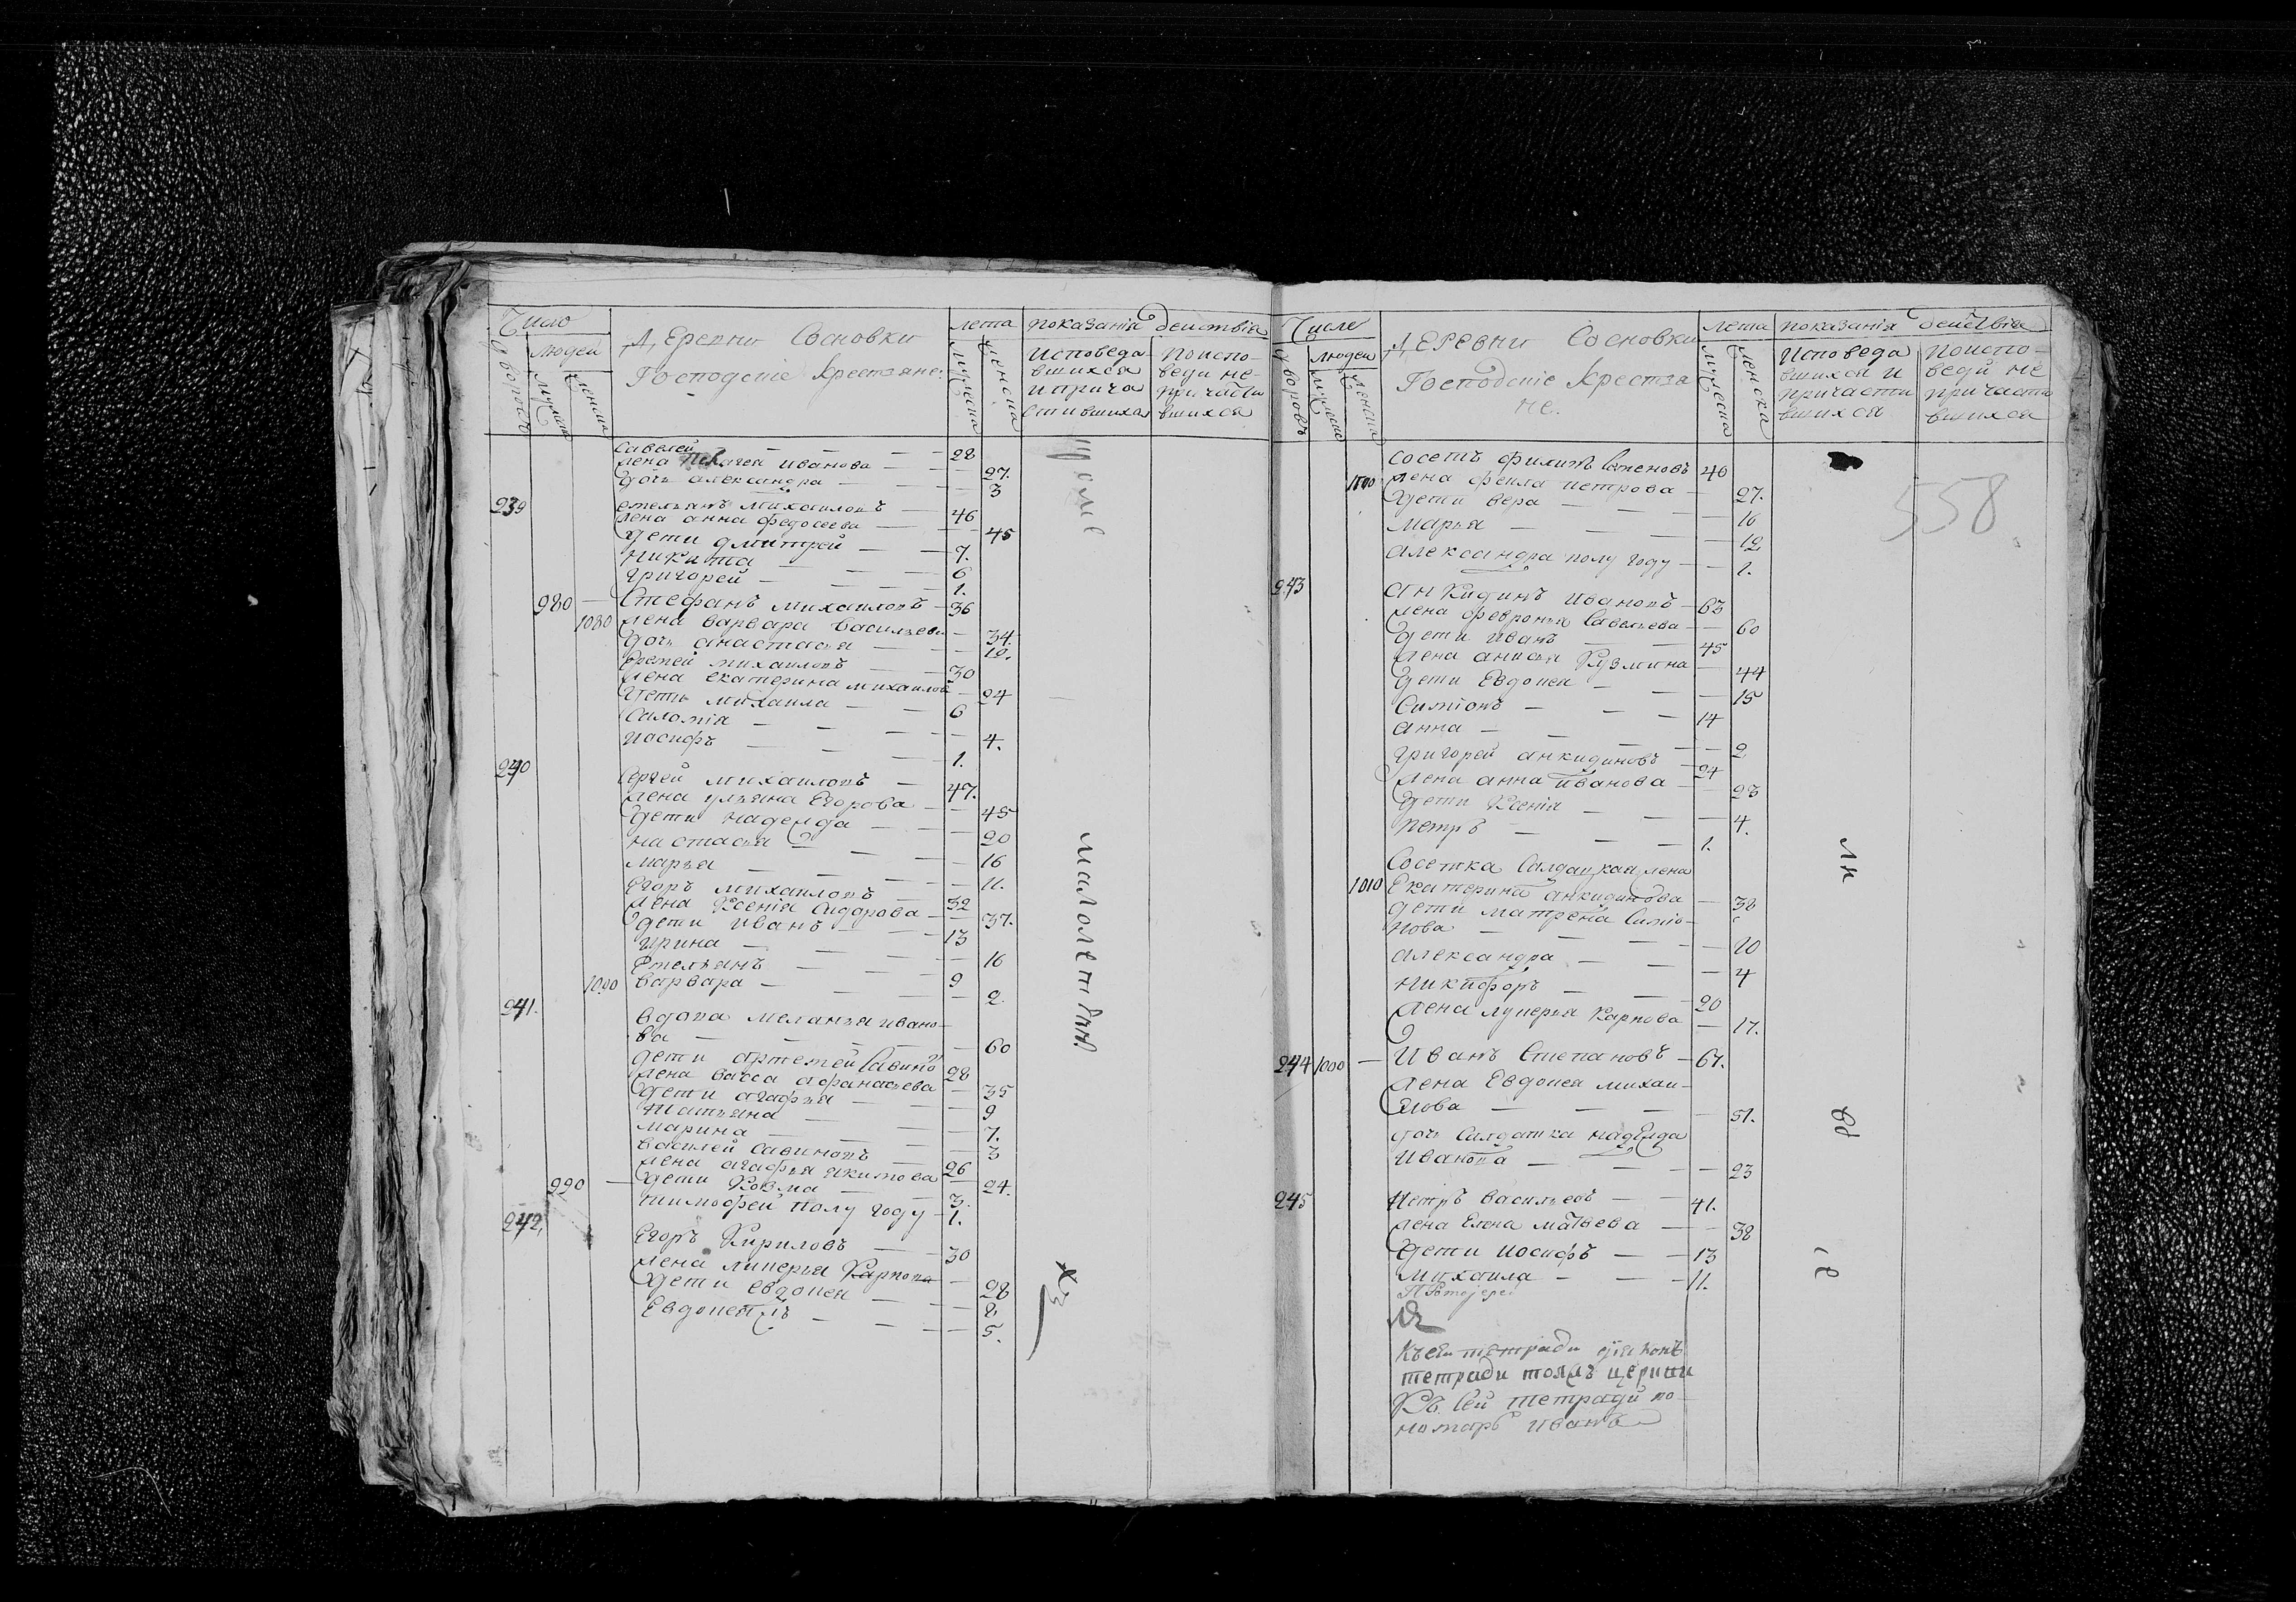 Число
людей
дворовъ
мужеска
женска
Деревни Сосновки
Господскіе Крестяне.
лета
мужеска
женска
показанія действіа
исповеда
вшихся
и прича
стившихся
по испо-
веди не-
причасти
вшихся
Савелей — — — 28
жена Пелагея иванова — — 27.
дочь александра — — 3
239 емельянъ михаиловъ — 46
жена анна федосеева — — 45
дети дмитрей — — 7.
никита — — 6
григорей — — 1.
980 — Стефанъ михаиловъ — 36
1030 жена варвара васильева — 34.
дочь анастасья — — 10.
еремей михаиловъ — — 30
жена екатерина михаилова — 24
дети михаила — — 6
Саломія — — — 4.
иосифъ — — 1.
240 Сергей михаиловъ — 47.
жена ульяна Егорова — — 45
дети надежда — — 20
настасья — — — 16
марья — — — 11.
Егоръ михаиловъ — 32
жена Ксенія сидорова — — 37.
дети иванъ — — 13
ирина — — — 16
Емельянъ — — 9
1000 варвара — — — 2.
241. вдова меланья ивано-
ва — — — 60
дети артемей Савино 28
жена васса афанасьева — 35
дети агафья — — 9
татьяна — — 7.
марина — — 3
василей савиновъ — 26
жена агафья якимова — 24.
990 — дети Козма — — 3.
тимофей полу году — 1.
242, Егоръ Кириловъ — 30
жена лукерья Карпова — 28
дети евдокея — — 8
Евдокемъ — — — 5.
малолетъ
Число
людей
дворовъ
мужеска
женска
Деревни Сосновки
Господскіе крестья
не.
лета
мужеска
женска
показанія действіа
исповеда
вшихся и
причасти
вшихся
по испо-
веди не
причасти
вшихся
558
Соседъ филипъ Семеновъ 40
жена фекла петрова — 27.
дети вера — — — 16
марья — — — 12
александра полу году — — 1.
243 анкидинъ ивановъ — 63
жена февронья Савельева — 60
дети иванъ — — 45
жена анисья Кузмина — 44
дети Евдокея — — — 15
Симіонъ — — — 14
анна — — — — 2
григорей анкидиновъ — 24
жена анна иванова — — 23
дети Ксенія — — — 4.
петръ — — — 1.
Соседка Салдацкая жена
1010 Екатерина анкидинова — 38
дети матрена Симіо-
нова — — — — 10
александра — — — 4
никифоръ — — — 20
жена лукерья Карпова — 17.
244 1000 — Иванъ Степановъ — 67.
жена Евдокея михаи-
лова — — — — 51.
дочь Салдатка надежда
иванова — — — — 23
245 Петръ васильевъ — — 41.
жена Елена матвева — — 38
дети иосифъ — — 13
михаила — — — 11.
Къ сей тетради
Къ сей тетради по-
номарь иванъ